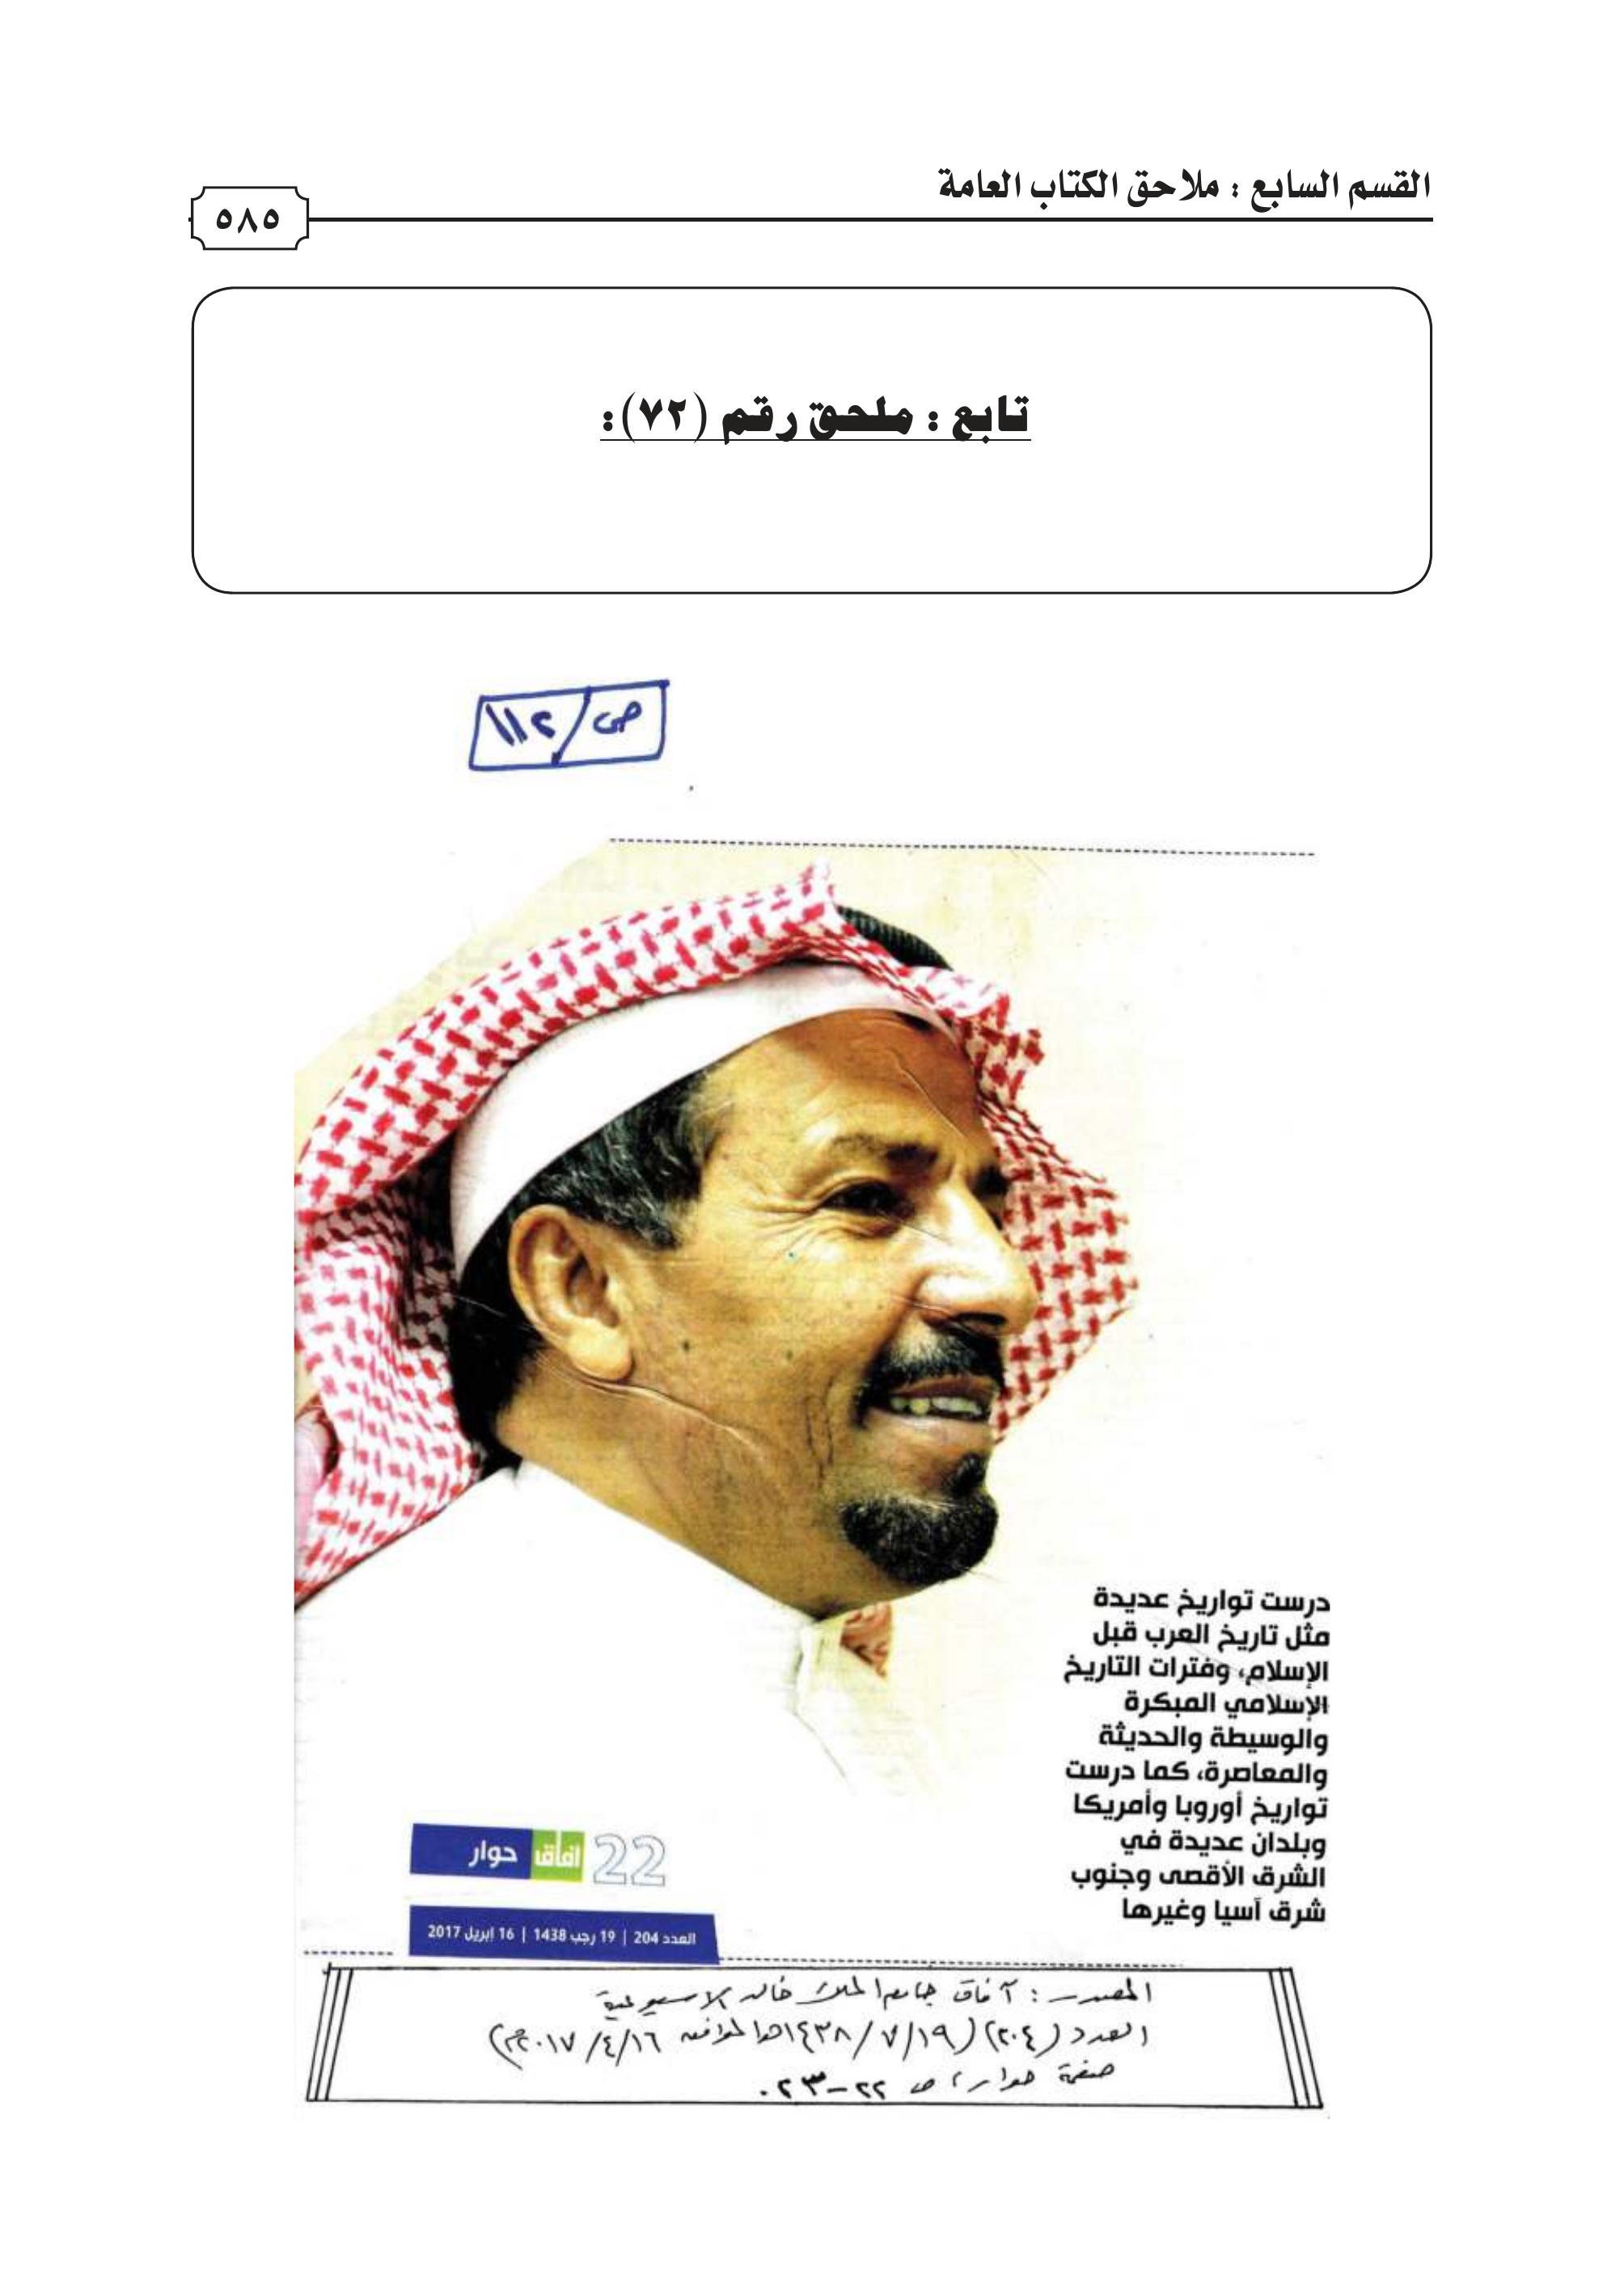 القسم السابع : ملاحق الكتاب العامة
٥٨٥
تابع : ملحق رقم (٧٢):
ص/١١٢
درست تواريخ عديدة
مثل تاريخ العرب قبل
الإسلام، وفترات التاريخ
الإسلامي المبكرة
والوسيطة والحديثة
والمعاصرة، كما درست
تواريخ أوروبا وأمريكا
وبلدان عديدة في
الشرق الأقصى وجنوب
شرق آسيا وغيرها
22 آفاق حوار
العدد 204 | 19 رجب 1438 | 16 ابريل 2017
المصدر : آفاق جامعة الملك خالد الاسبوعية
العدد (٢٠٤) (١٤٣٨/٧/١٩هـ الموافق ٢٠١٧/٤/١٦م)
صفحة حوار، ص ٢٢-٢٣.